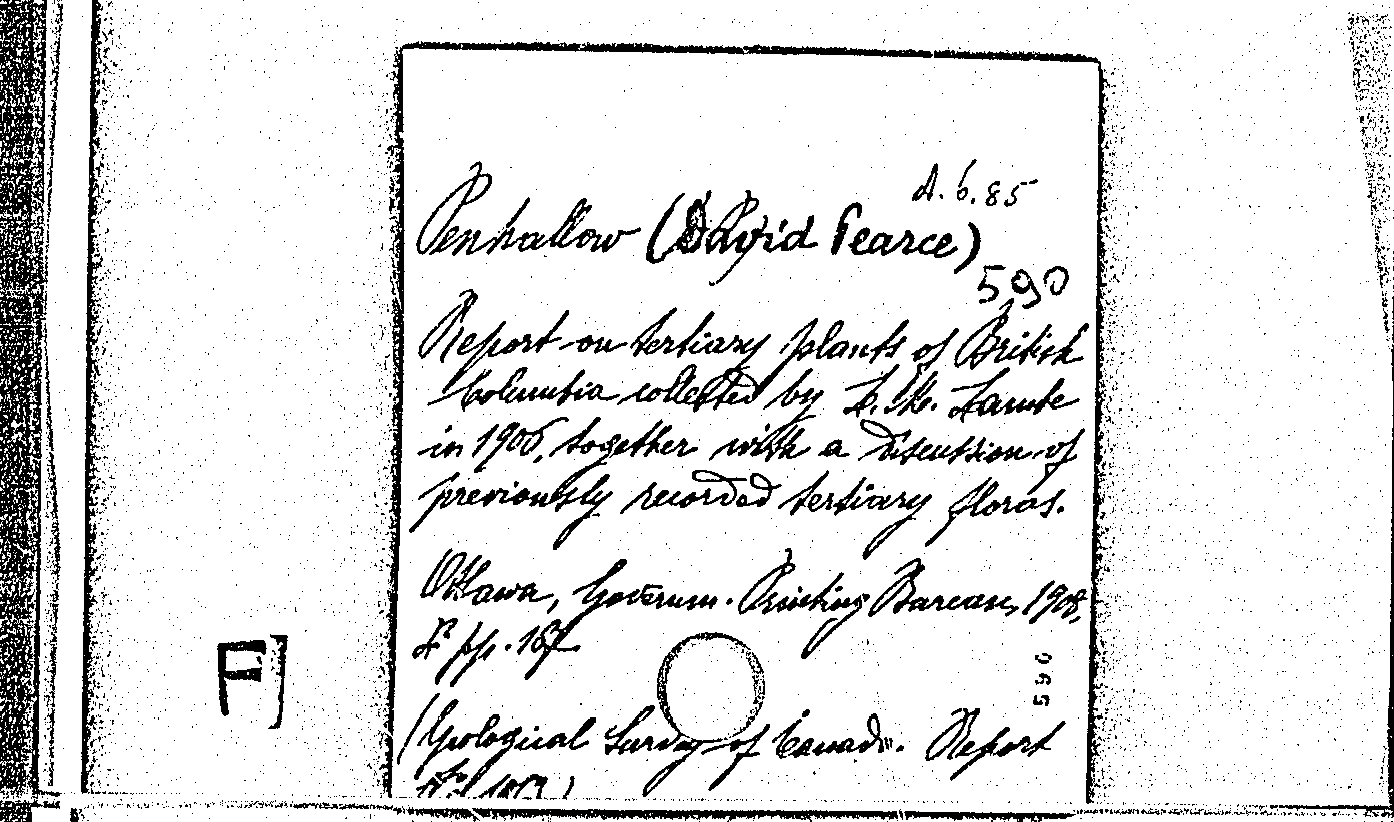 A.6.85
Penhallow (David Pearce)
590
Report on tertiary plants of British
Columbia collected by L. M. Lambe
in 1906, together with a discussion of
previously recorded tertiary floras.
Ottawa, Governm. Printing Bureau, 1908,
pp. 167
590
F]
(Geological Survey of Canada. Report
No 1013)